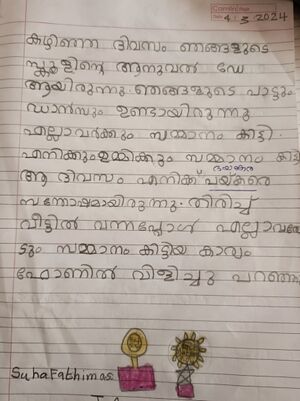 4-3-2024
കഴിഞ്ഞ ദിവസം ഞങ്ങളുടെ
സ്കൂളിന്റെ ആനുവൽ ഡേ
ആയിരുന്നു. ഞങ്ങളുടെ പാട്ടും
ഡാൻസും ഉണ്ടായിരുന്നു
എല്ലാവർക്കും സമ്മാനം കിട്ടി.
എനിക്കും ഉമ്മിക്കും സമ്മാനം കിട്ടി
ഭയങ്കര
ആ ദിവസം എനിക്ക് പയങ്കരെ
സന്തോഷമായിരുന്നു. തിരിച്ച്
വീട്ടിൽ വന്നപ്പോൾ എല്ലാവരോ
ടും സമ്മാനം കിട്ടിയ കാര്യം
ഫോണിൽ വിളിച്ചു പറഞ്ഞു
Suha Fathima s